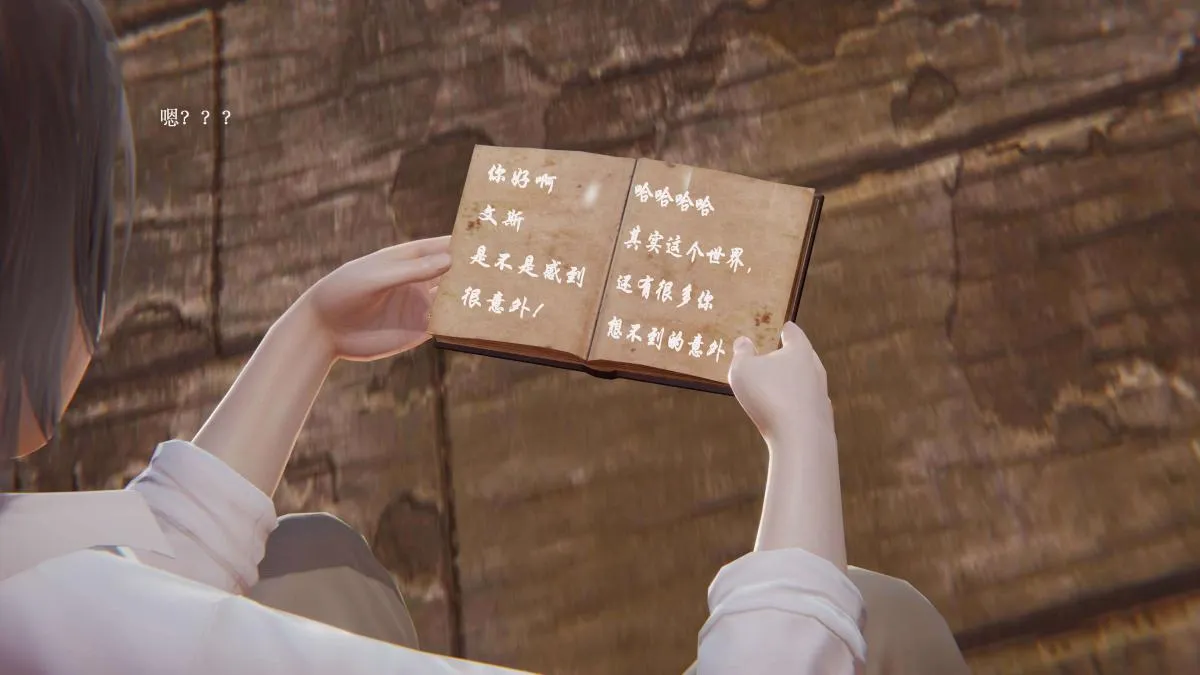 嗯？？？
你好啊
文斯
是不是感到
很意外！
哈哈哈哈
其实这个世界，
还有很多你
想不到的意外